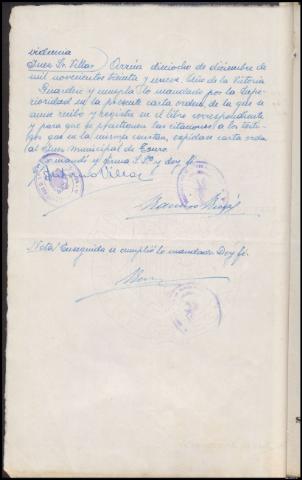 Providencia
Juez Sr. Villar
diciocho de diciembre de
mil novecientos treinta y nueve. Año de la Victoria
Guardese y cumpla lo mandado por la Supe-
rioridad en la presente carta orden de la que se
acuse recibo y registra en el libro correspondiente
y para que se practiquen las citaciones a los testi-
gos que en la misma constan, expidase carta orden
al Juez Municipal de
Lo mandó y firma S.Sª doy fe.
Villar
Nota/ Enseguida se cumplió lo mandado. Doy fe.